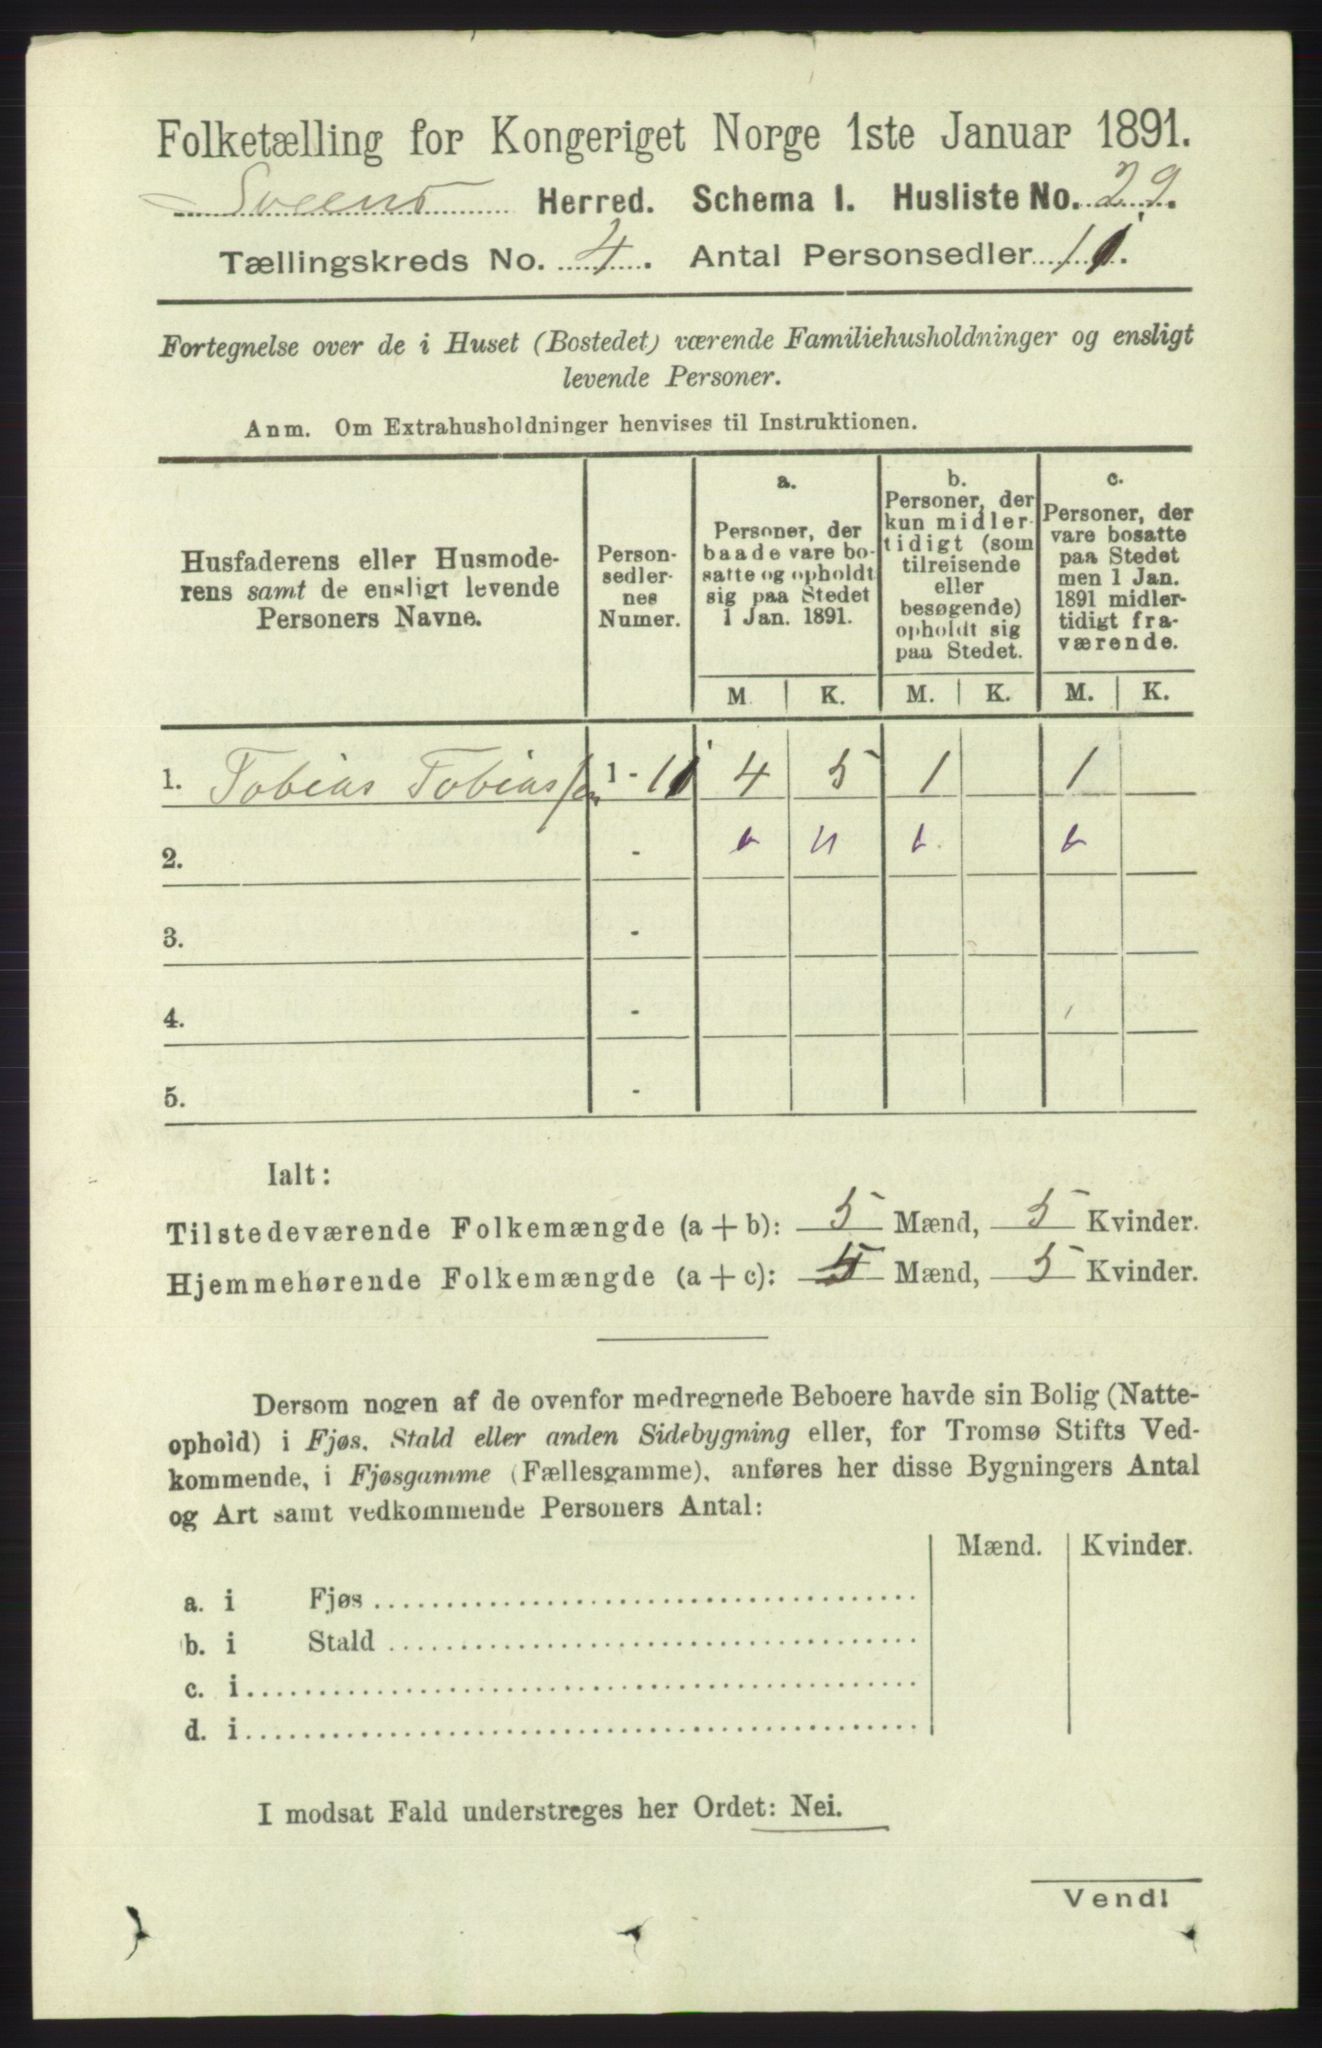 Folketælling for Kongeriget Norge 1ste Januar 1891.
Sveens Herred. Schema I. Husliste No. 29.
Tællingskreds No. 4. Antal Personsedler 11.
Fortegnelse over de i Huset (Bostedet) værende Familiehusholdninger og ensligt
levende Personer.
Anm. Om Extrahusholdninger henvises til Instruktionen.
Husfaderens eller Husmode-
rens samt de ensligt levende
Personers Navne.
Person-
sedler-
nes
Numer.
a.
Personer, der
baade vare bo-
satte og opholdt
sig paa Stedet
1 Jan. 1891.
b.
Personer, der
kun midler-
tidigt (som
tilreisende
eller
besøgende)
opholdt sig
paa Stedet.
c.
Personer, der
vare bosatte
paa Stedet
men 1 Jan.
1891 midler-
tidigt fra-
værende.
M. K. M. K. M. K.
1. Tobias Tobiassen 1 - 11 4 5 1 1
2. -
3. -
4. -
5. -
Ialt:
Tilstedeværende Folkemængde (a + b): 5 Mænd, 5 Kvinder.
Hjemmehørende Folkemængde (a + c): 5 Mænd, 5 Kvinder.
Dersom nogen af de ovenfor medregnede Beboere havde sin Bolig (Natte-
ophold) i Fjøs, Stald eller anden Sidebygning eller, for Tromsø Stifts Ved-
kommende, i Fjøsgamme (Fællesgamme), anføres her disse Bygningers Antal
og Art samt vedkommende Personers Antal:
Mænd. Kvinder.
a. i Fjøs
b. i Stald
c. i
d. i
I modsat Fald understreges her Ordet: Nei.
Vend!